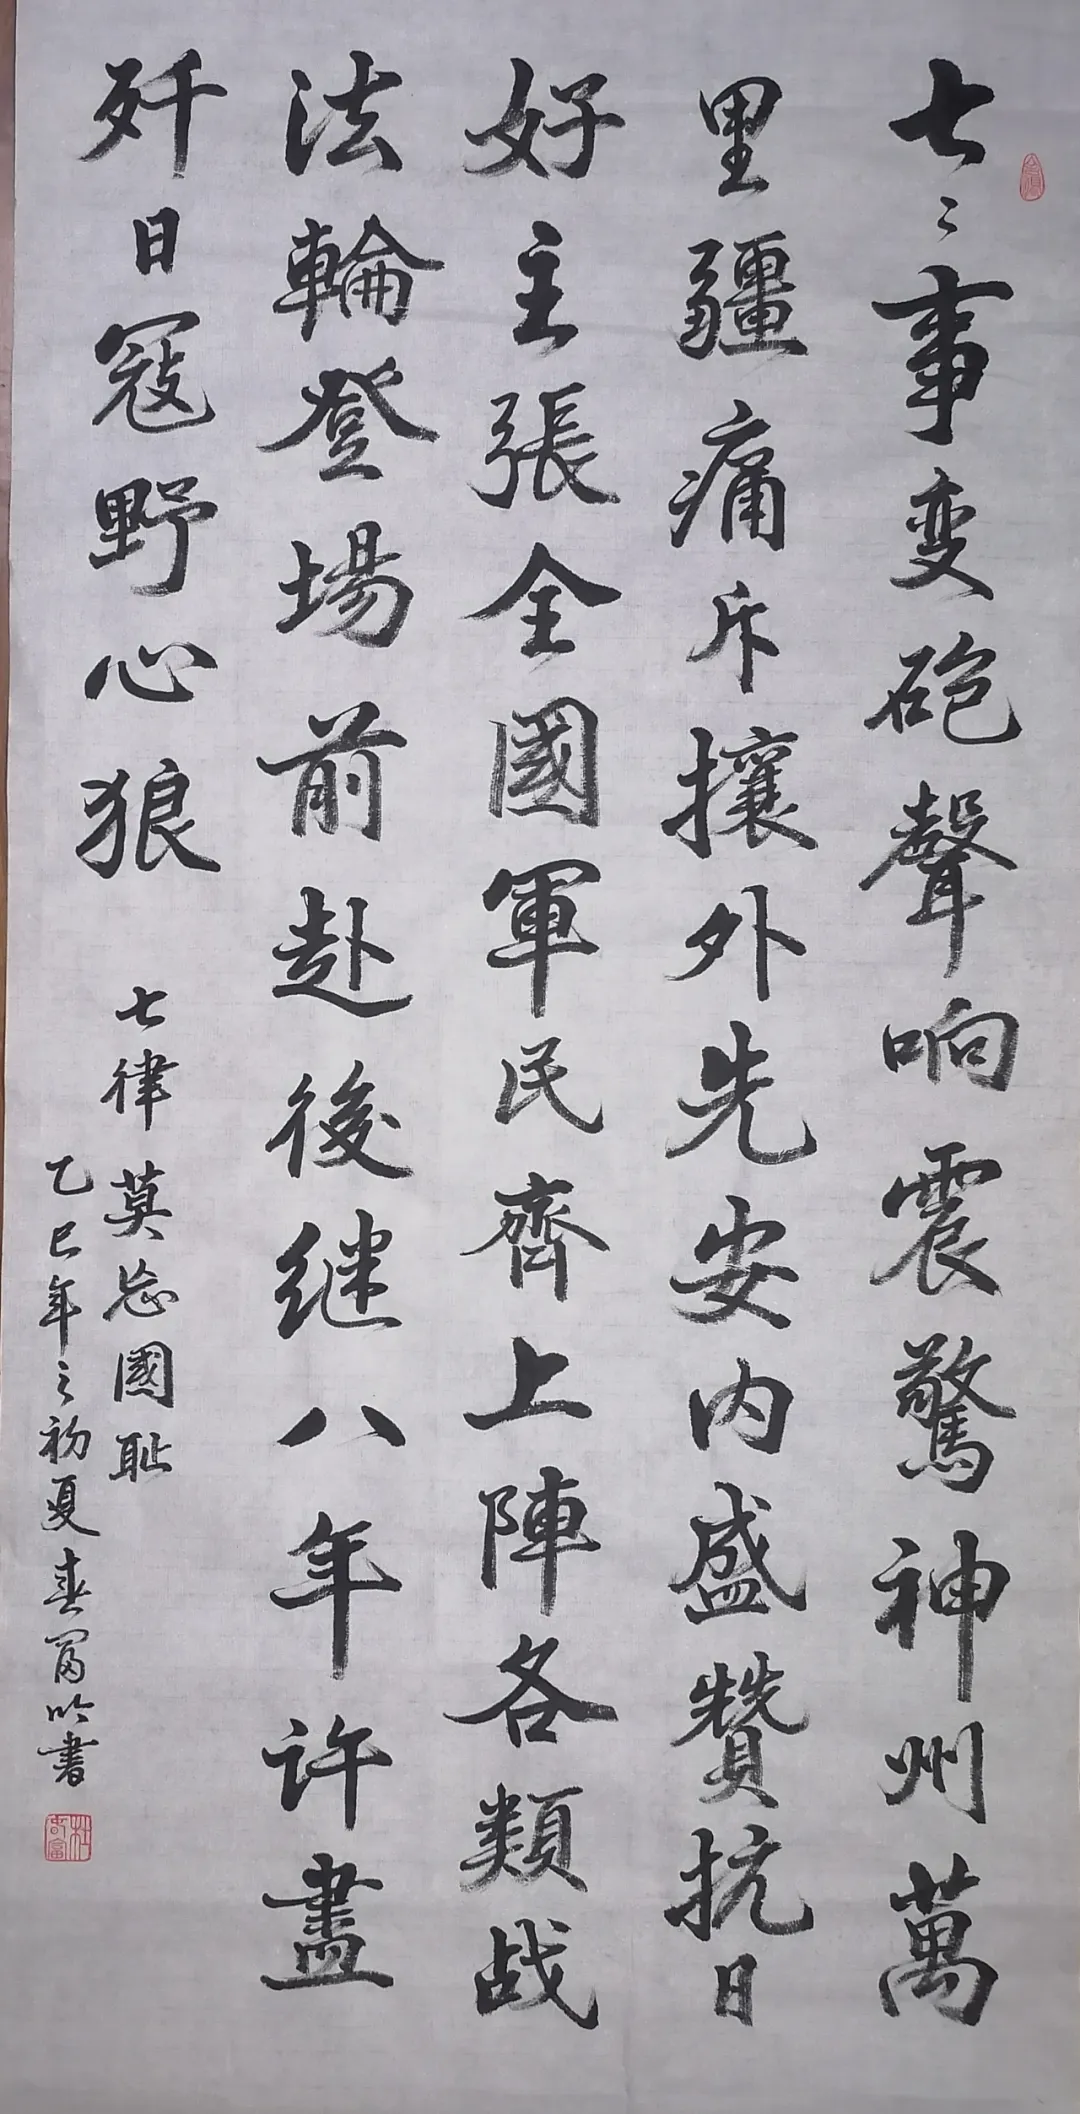 七〻事变砲聲响震驚神州萬
里疆痛斥攘外先安内盛贊抗日
好主張全國軍民齊上陣各類战
法輪登場前赴後继八年许盡
歼日寇野心狼
七律莫忘國耻
乙巳年之初夏春富吟書